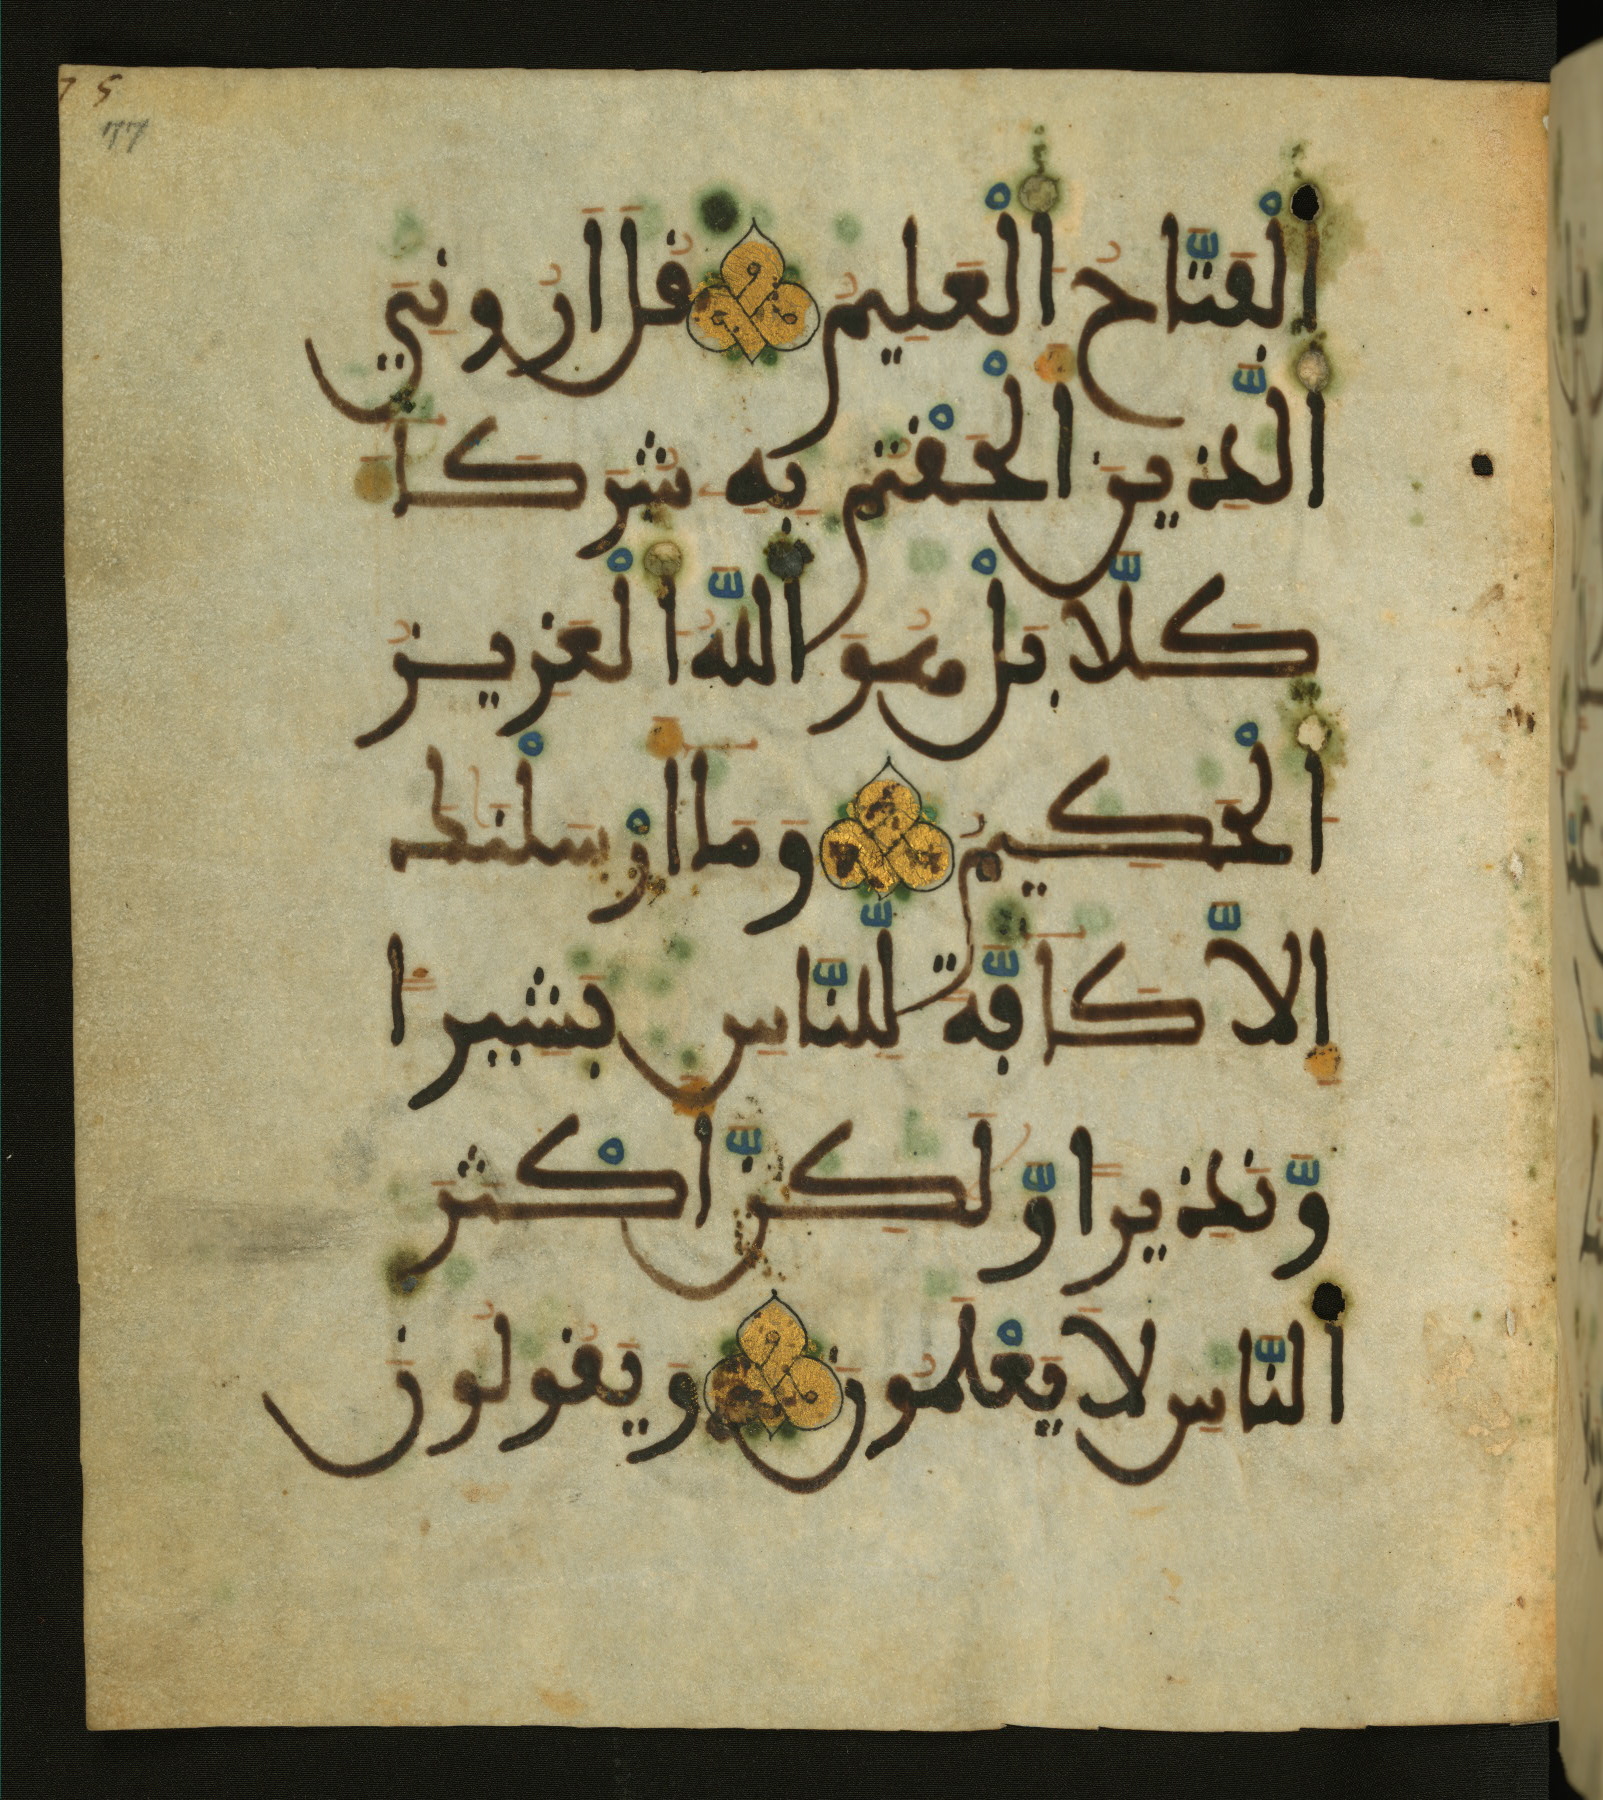 75
77
الْفَتَّاحُ الْعَلِيمُ قُلَ ارُونِيَ
الَّذِينَ أَلْحَقْتُم بِهِ شُرَكَا
كَلَّا بَلْ هُوَ اللَّهُ الْعَزِيزُ
الْحَكِيمُ وَمَا أَرْسَلْنَٰكَ
إِلَّا كَافَّةً لِّلنَّاسِ بَشِيرًا
وَّنَذِيرًا وَّلَٰكِنَّ أَكْثَرَ
النَّاسِ لَا يَعْلَمُونَ وَيَقُولُونَ